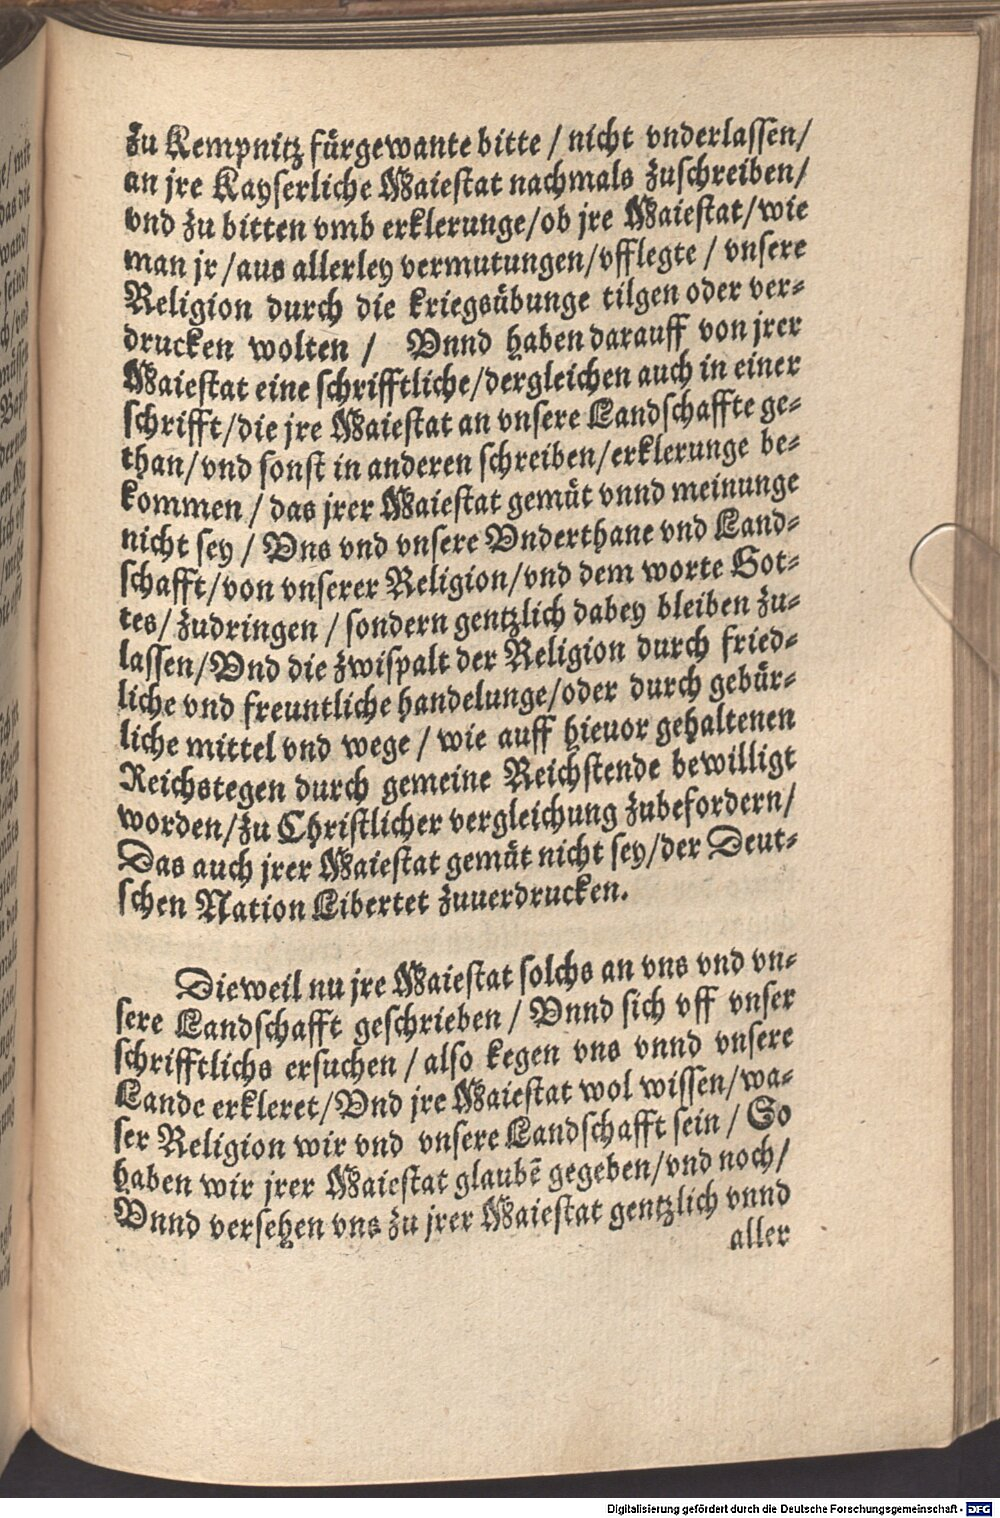 zu Kempnitz fürgewante bitte / nicht vnderlassen/
an jre Kayserliche Maiestat nachmals zuschreiben/
vnd zu bitten vmb erklerunge/ob jre Maiestat/wie
man jr/aus allerley vermutungen/vfflegte / vnsere
Religion durch die kriegsübunge tilgen oder ver-
drucken wolten / Vnnd haben darauff von jrer
Maiestat eine schrifftliche/dergleichen auch in einer
schrifft/die jre Maiestat an vnsere Landschaffte ge-
than/vnd sonst in anderen schreiben/erklerunge be-
kommen / das jrer Maiestat gemüt vnnd meinunge
nicht sey / Vns vnd vnsere Vnderthane vnd Land-
schafft/von vnserer Religion/vnd dem worte Got-
tes/ zudringen / sondern gentzlich dabey bleiben zu-
lassen/Vnd die zwispalt der Religion durch fried-
liche vnd freuntliche handelunge/oder durch gebür-
liche mittel vnd wege / wie auff hieuor gehaltenen
Reichstegen durch gemeine Reichstende bewilligt
worden/zu Christlicher vergleichung zubefordern/
Das auch jrer Maiestat gemüt nicht sey/der Deut-
schen Nation Libertet zuuerdrucken.
Dieweil nu jre Maiestat solchs an vns vnd vn-
sere Landschafft geschrieben / Vnnd sich vff vnser
schrifftlichs ersuchen / also kegen vns vnnd vnsere
Lande erkleret/Vnd jre Maiestat wol wissen/wa-
ser Religion wir vnd vnsere Landschafft sein / So
haben wir jrer Maiestat glaubē gegeben/vnd noch/
Vnnd versehen vns zu jrer Maiestat gentzlich vnnd
aller
Digitalisierung gefördert durch die Deutsche Forschungsgemeinschaft - DFG